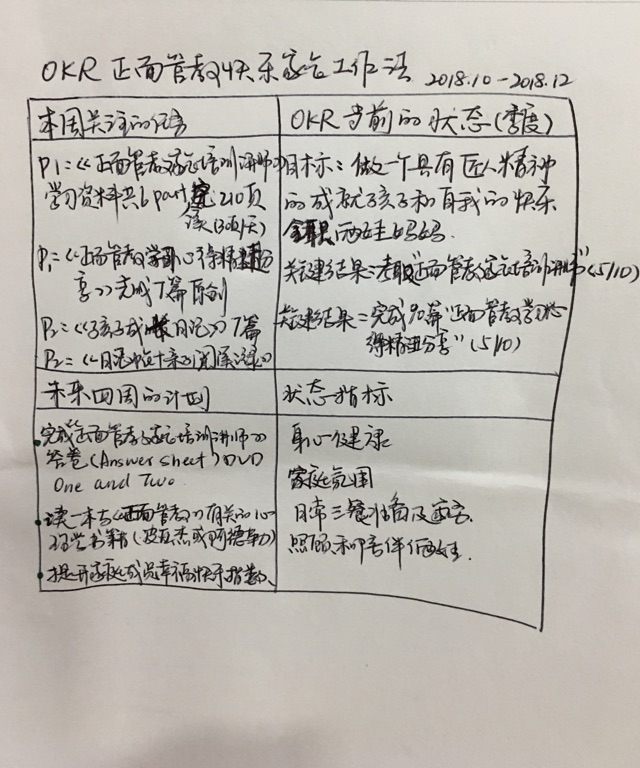 OKR 正面管教快乐家长工作法 2018.10-2018.12
本周关注的任务
P1:《正面管教家长培训讲师》
学习资料共6part 完 210页
读(30页/天)
P1:《正面管教学习心得精进分
享》完成7篇原创
P2:《孩子成长日记》7篇
P2:《日记
OKR当前的状态(季度)
目标:做一个具有匠人精神
的成就孩子和自我的快乐
全职两娃妈妈.
关键结果:考取"正面管教家长培训讲师"(5/10)
关键结果:完成90篇"正面管教学习心
得精进分享"(5/10)
未来四周的计划
•完成《正面管教家长培训讲师》
答卷(Answer sheet) DVD
One and Two.
•读一本与《正面管教》有关的心
理学书籍(皮亚杰或阿德勒)
•提升家庭成员幸福快乐指数、
状态指标
身心健康
家庭氛围
日常三餐
照顾和陪伴俩娃.